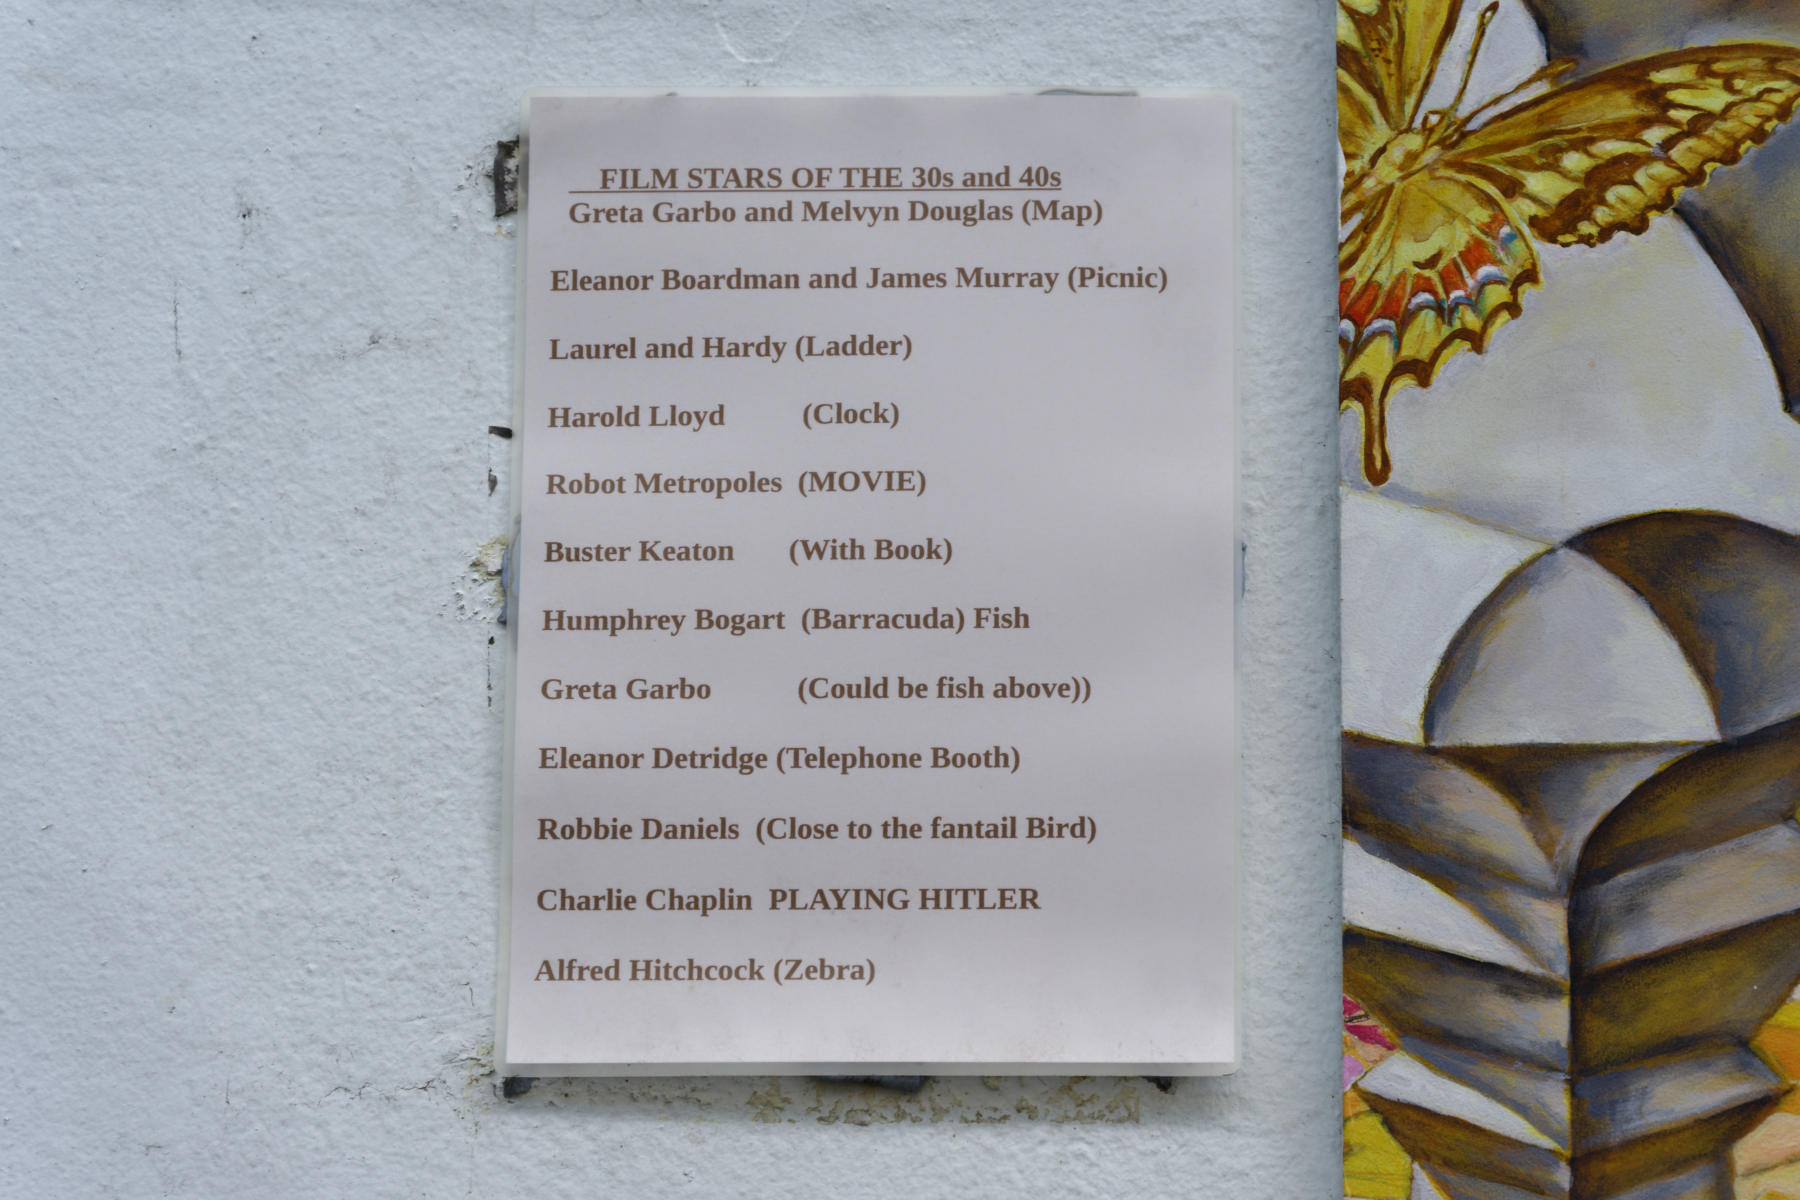 FILM STARS OF THE 30s and 40s
Greta Garbo and Melvyn Douglas (Map)
Eleanor Boardman and James Murray (Picnic)
Laurel and Hardy (Ladder)
Harold Lloyd (Clock)
Robot Metropoles (MOVIE)
Buster Keaton (With Book)
Humphrey Bogart (Barracuda) Fish
Greta Garbo (Could be fish above))
Eleanor Detridge (Telephone Booth)
Robbie Daniels (Close to the fantail Bird)
Charlie Chaplin PLAYING HITLER
Alfred Hitchcock (Zebra)